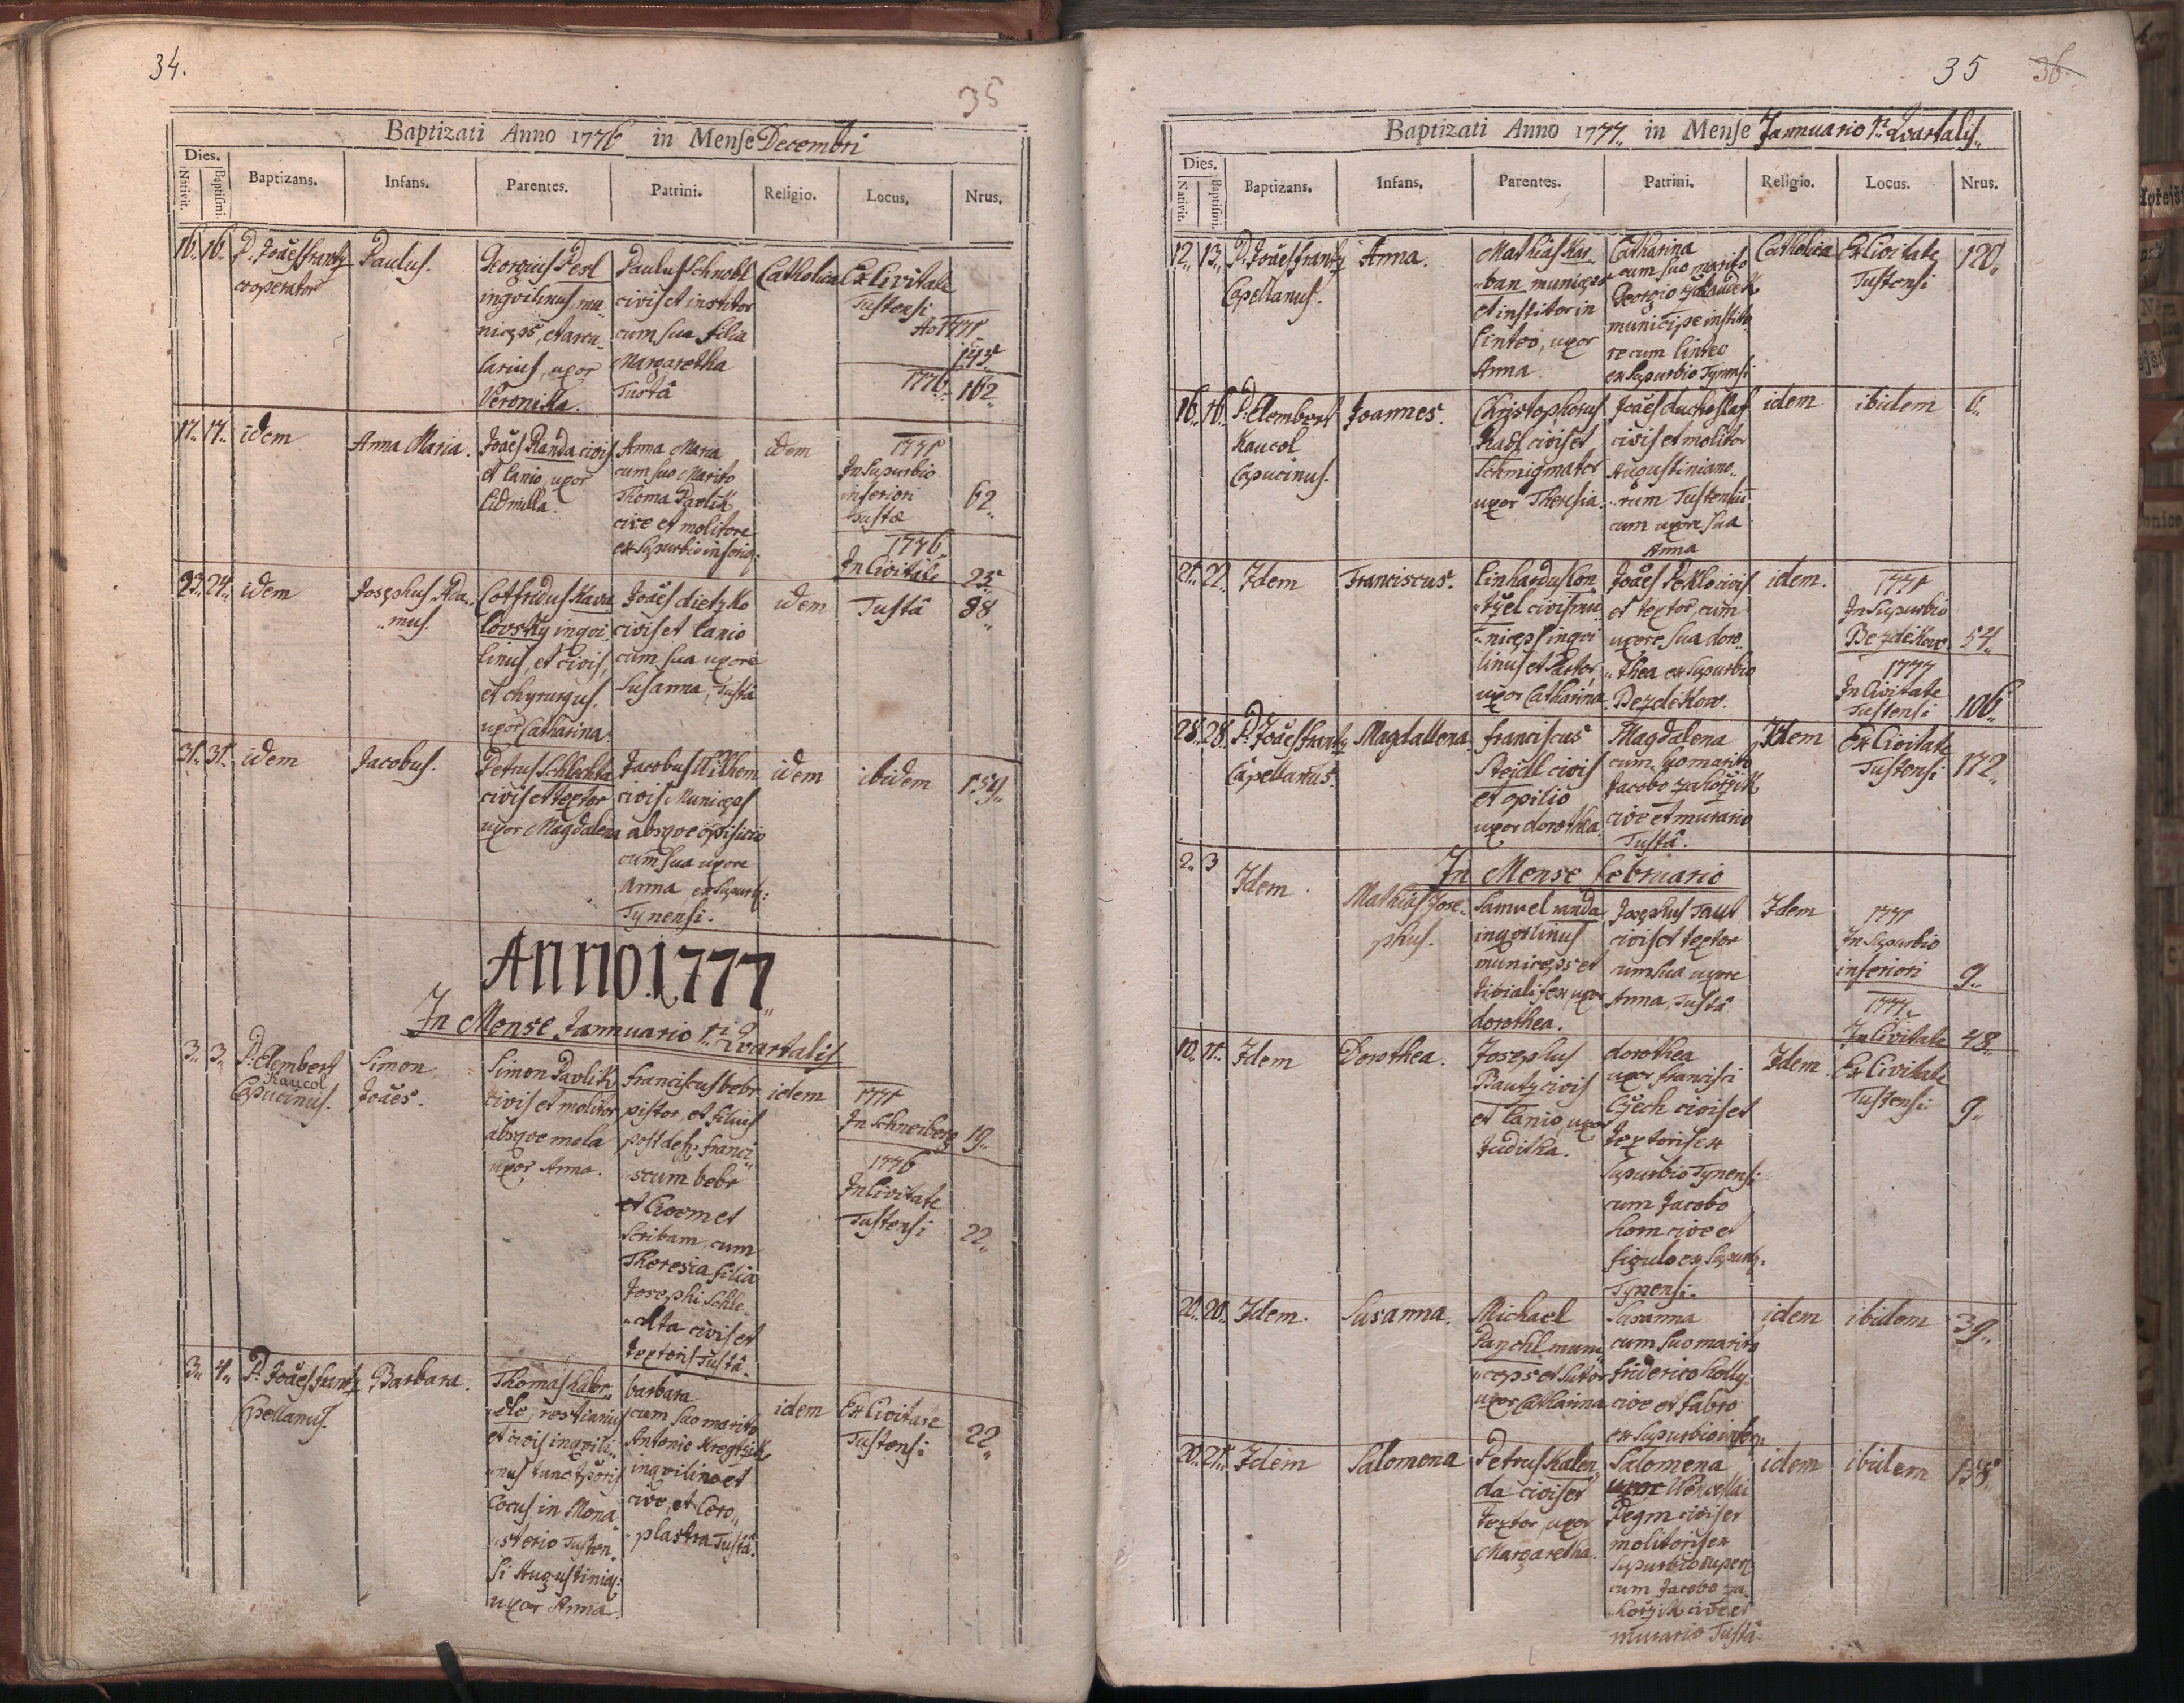 34.
35
Baptizati Anno 1776 in Mense Decembri
Dies.
Nativit.
Baptismi
Baptizans.
Infans.
Parentes.
Patrini.
Religio.
Locus.
Nrus.
16. 16. P. Joaes frantz
cooperator
Paulus.
Georgius Pesl
ingvilinus, mu
niceps, et arcu
larius, uxor
Veronika.
Paulus Schnobl
civis et institor
cum sua filia
Margaretha
Tustâ
Catholica
Ex Civitate
Tustensi
1776
162
17. 17. idem
Anna Maria.
Joaes Randa civis
et lanio, uxor
Lidmilla.
Anna Maria
cum suo Marito
Thoma Pavlik
cive et molitore
ex Supurbio inferio:
idem
1771
In Supurbio
inferiori
Tustæ
62
1776
In Civitate
Tustâ
23. 24. idem
Josephus Ada
mus.
Gotfridus Kava
lovsky ingvi
linus, et civis,
et chyrurgus,
uxor Catharina.
Joaes dietzko
civis et lanio
cum sua uxore
Susanna, Tustâ
idem
88
31. 31. idem
Jacobus.
Petrus Schlechta
civis et textor
uxor Magdalena
Jacobus Wilhem
civis Municeps
absqve opificio
cum sua uxore
Anna ex Supurb:
Tynensi.
idem
ibidem
159
Anno 1777
In Mense Jannuario 1ri Qvartalis
3. 3. P. Elembert
Kaucol
Capucinus.
Simon
Joaes.
Simon Pavlik
civis et molitor
absqve mola
uxor Anna.
Franciscus bebr
pistor, et filius
post def: franci
scum bebr
et Civem et
Scribam, cum
Theresia filia
Josephi Schle
chta civis et
textoris Tustâ.
idem
1771
In Schneiberg 19
1776
In Civitate
Tustensi 22
3. 4. P. Joaes frantz
Capellanus.
Barbara.
et civis ingvili
nus
Cocus in Mona
sterio Tusten
si Augustinia:
uxor Anna.
barbara
cum suo marito
Antonio
ingvilino et
cive, et Cero
plastra Tustâ.
idem
Ex Civitate
Tustensi
22
35 36
Baptizati Anno 1777. in Mense Jannuario 1ri Qvartalis
Dies.
Nativit.
Baptismi.
Baptizans.
Infans,
Parentes.
Patrini.
Religio.
Locus.
Nrus.
12. 13. P. Joaes frantz
Capellanus.
Anna.
Mathias Kar
ban municeps
et institor in
linteo, uxor
Anna.
Catharina
cum suo marito
Georgio
municipe instito
re cum linteo
ex Supurbio Tynensi
Catholica
Ex Civitate
Tustensi
120
16. 16. P. Elembert
Kaucol
Capucinus.
Joannes.
Christophorus
Radl civis et
Schmigmator
uxor Theresia.
Joaes duchoslaf
civis et molitor
Augustiniano
rum Tustensiu
cum uxore sua
Anna
idem
ibidem
6
21. 22. Idem
Franciscus.
Linhardus Con
tzel civis mu
niceps ingvi
linus et Sartor,
uxor Catharina.
Joaes Peklo civis
et textor, cum
uxore sua doro
thea ex Supurbio
Bezdekow.
idem.
1771
In Supurbio
Bezdekow. 54
1777
In Civitate
Tustensi 106
28. 28. P. Joaes frantz
Capellanus.
Magdallena
franciscus
Steidl civis
et opilio
uxor dorothea.
Magdalena
cum suo marito
Jacobo zahorzik
cive et murario
Tustâ.
Idem
Ex Civitate
Tustensi
172
In Mense Februario
2. 3 Idem.
Mathias Jose
phus.
Samuel randa
ingvilinus
municeps et
dorothea.
Josephus Taut
civis et textor
cum sua uxore
Anna, Tustâ
Idem
1771
In Supurbio
inferiori 9
1777
In Civitate 48
10. 11. Idem
Dorothea.
Josephus
Pautz civis
et lanio, uxor
Juditha.
dorothea
uxor francisci
Czech civis et
textoris ex
Supurbio Tynensi
cum Jacobo
horn cive et
figulo ex Supurb:
Tynensi.
Idem
Ex Civitate
Tustensi
9
20. 20. Idem.
Susanna.
Michael
Paychl muni
ceps et Sutor
uxor Catharina
Susanna
cum suo marito
friderico holly
cive et fabro
ex Supurbio infer:
idem
ibidem
39
20. 21. Idem
Salomena
Petrus Kalen
da civis et
textor, uxor
Margaretha.
Salomena
uxor Wencellai
Pegm civis et
molitoris ex
Supurbio super:
cum Jacobo za
horzik cive et
murario Tustâ.
idem
ibidem
158